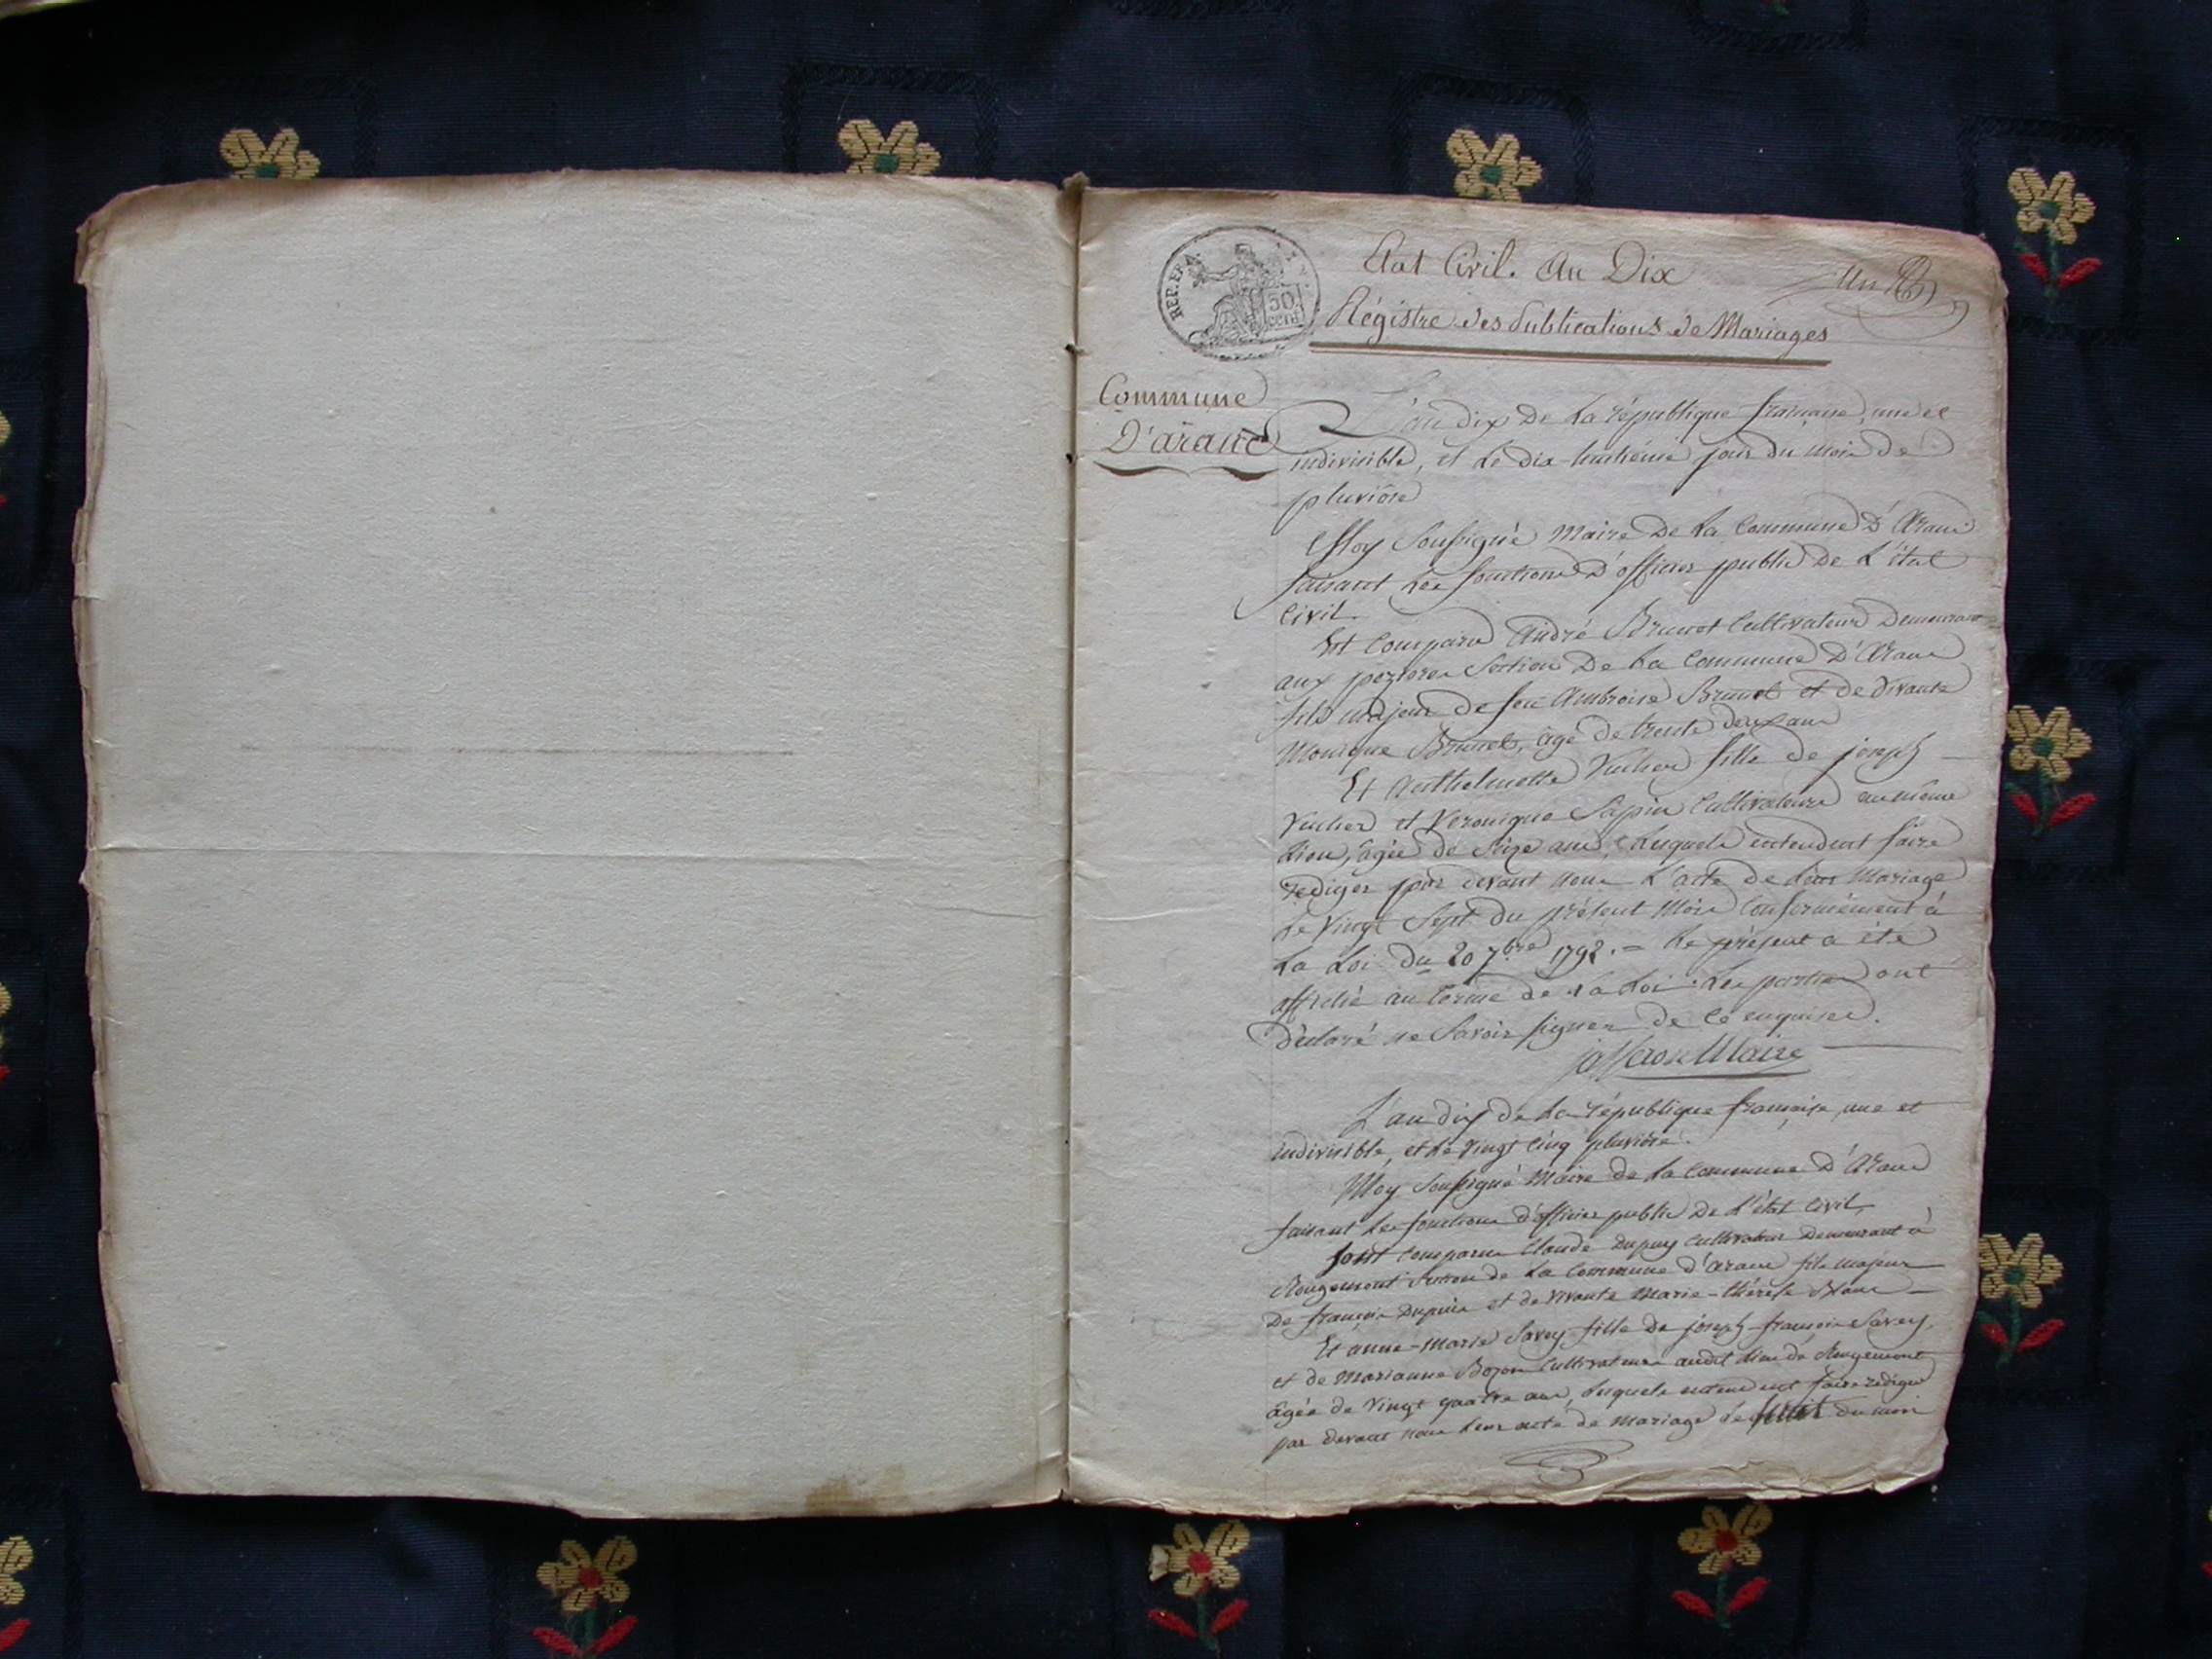 REP. FRA.
50
cent.
Etat Civil. An Dix
Un
Régistre des Publications de Mariages
Commune
D'arane
L'an dix De La république française, une et
indivisible, et Le dix huitième jour du mois de
pluviôse
Moy Soussigné Maire De La Commune D'Arane
faisant Les fonctions D'officier public De L'état
Civil.
Est Comparu André Brunet Cultivateur Demeurant
aux Section De La Commune D'Arane
fils majeur de feu Ambroise Brunet et de vivante
Monique Brunet, agé de trente deux ans
Et Anthelmette Vucher fille de joseph
Vucher et Veronique Sapin Cultivateurs au même
Lieu, agée de Seize ans, Lesquels entendent faire
rediger par devant nous L'acte de Leur Mariage
Le Vingt Sept du présent Mois Conformément à
La Loi Du 20 7bre 1792. = Le présent a été
affiché au terme de La Loi. Les parties ont
Déclaré ne Savoir signer de Ce enquises.
Maire
L'an dix de La république française, une et
indivisible, et Le Vingt Cinq pluviôse.
Moy Soussigné Maire de La Commune D'Arane
faisant Les fonctions d'officier public De L'état Civil
Sont Comparus Claude Dupuis Cultivateur Demeurant à
Rougemont Section de La Commune d'arane fils majeur
De françois Dupuis et de Vivante Marie-thérèse
Et anne-Marie Savey fille De joseph-françois Savey,
et de Marianne Bozon Cultivateurs audit Lieu de Rougemont
agée de Vingt quatre ans, Lesquels entendent faire rediger
par devant nous Leur acte de Mariage Le du mois